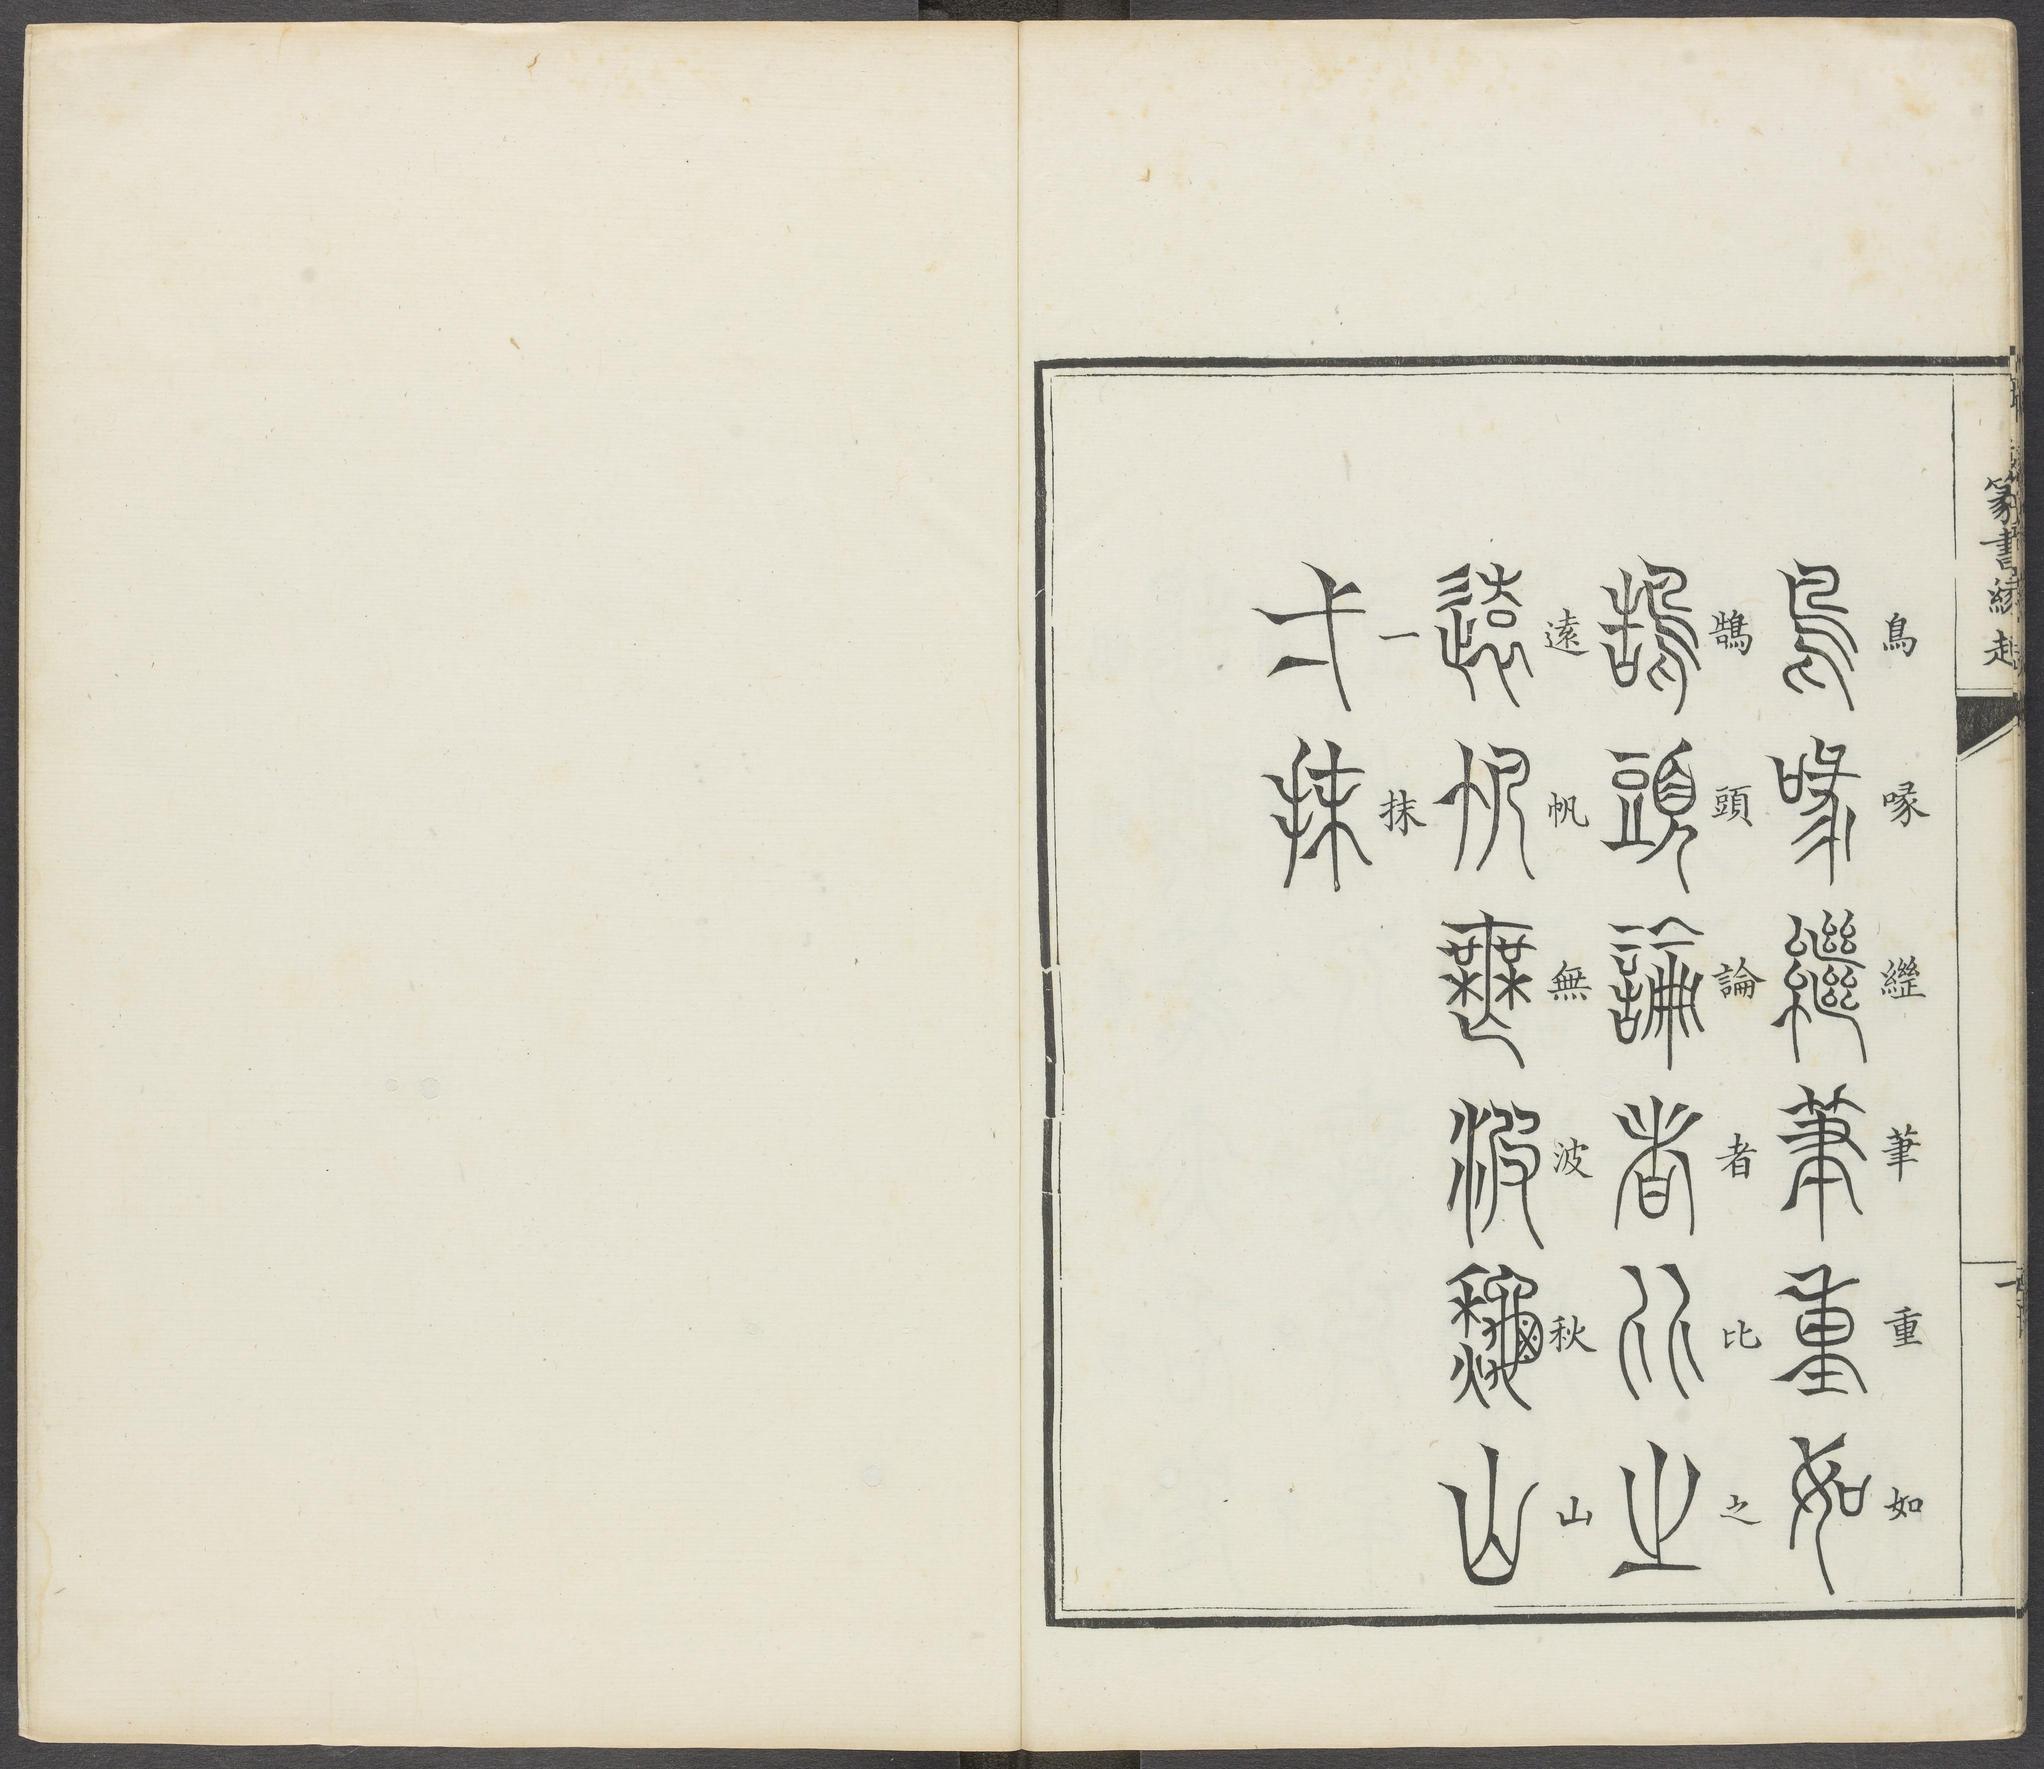 篆書緣起
鳥啄繼筆重如
鳥啄繼筆重如
鵠頭論者比之
鵠頭論者比之
遠帆無波秋山
遠帆無波秋山
一抹
一抹